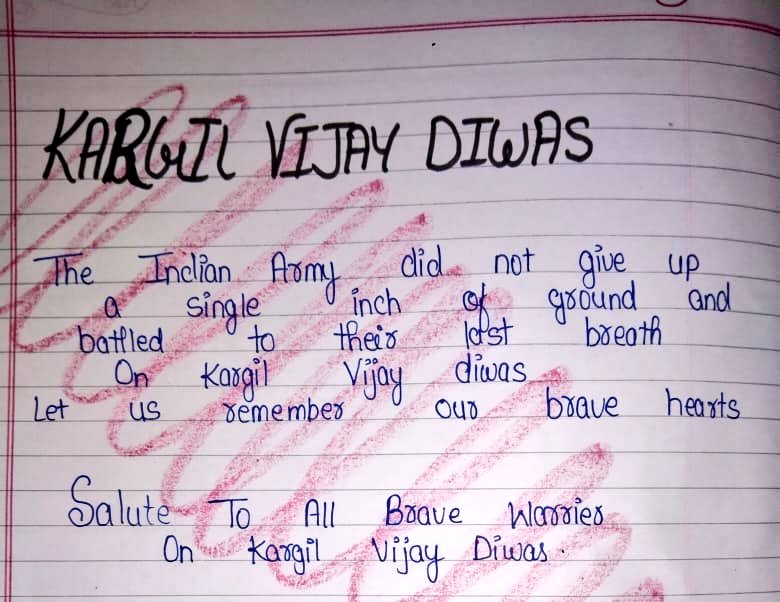 KARGIL VIJAY DIWAS
The Indian Army did not give up
a single inch of ground and
battled to their last breath
On Kargil Vijay diwas
Let us remember our brave hearts
Salute To All Brave Warrier
On Kargil Vijay Diwas.